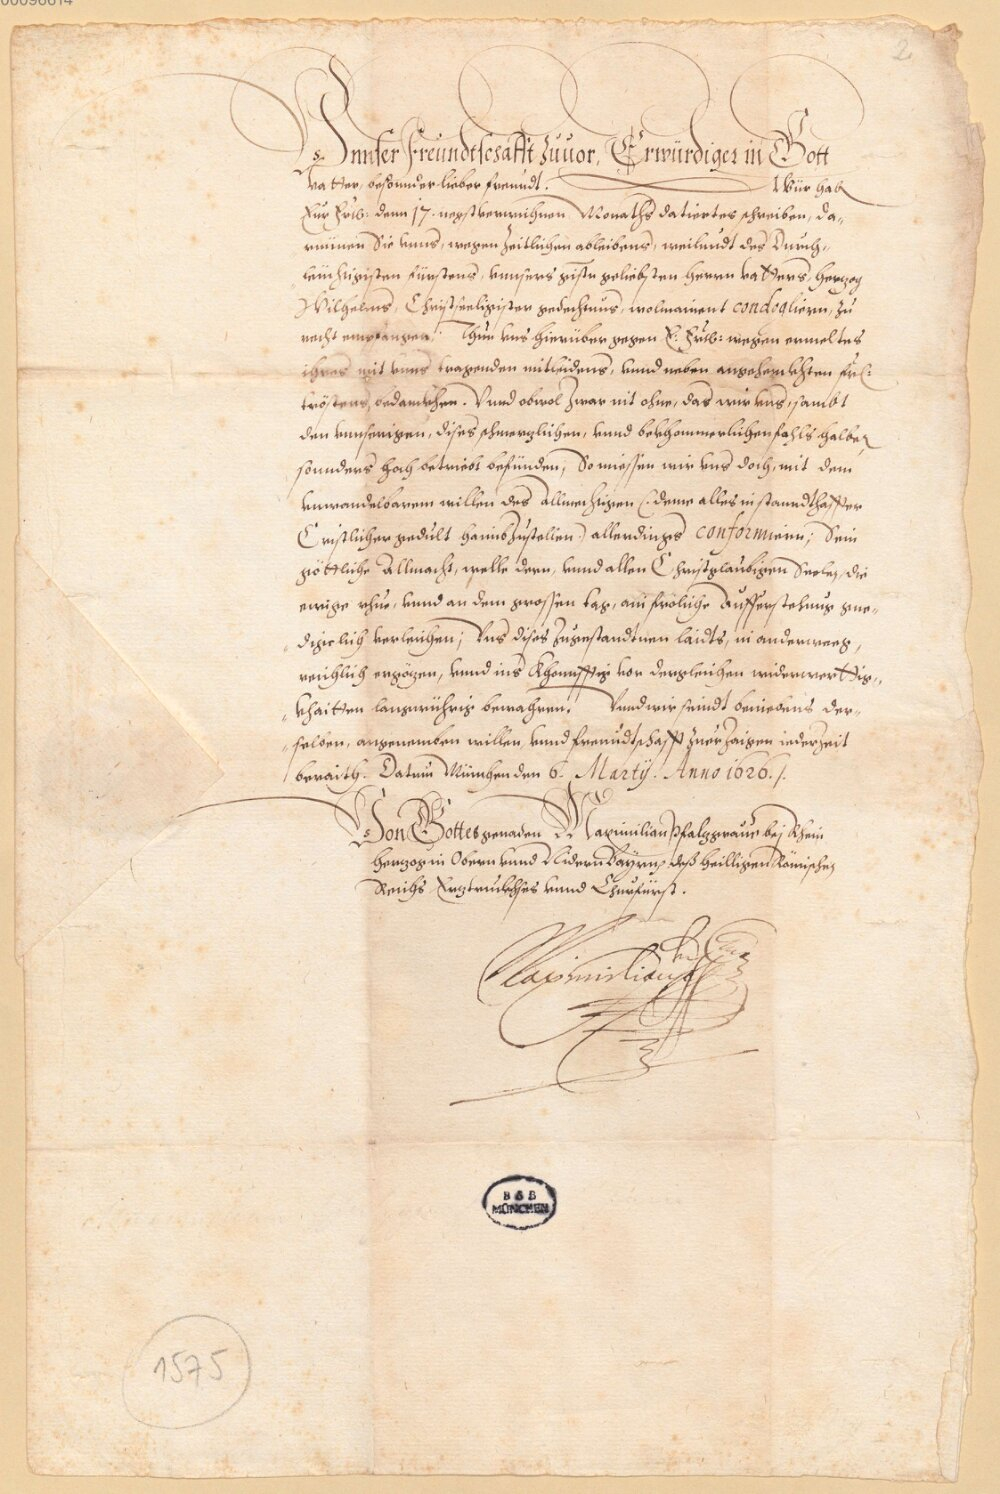 00096614
2
Vnnser Freundtschafft zuuor, Erwürdiger in Gott
vatter, besonnder lieber freundt. Wür hab
Eur Erw: denn 17. negstverwichnen Monaths datiertes schreiben, da-
rinnen Sie vnns, wegen zeitlichen ableibens, weilundt des Durch-
leüchtigisten fürstens, vnnsers geliebsten herrn vatters, herzog
Wilhelms, Christseeligister gedechtnus, wolmainent condogliern, zu
recht empfangen. Thun vns hierüber gegen E: Erw: wegen ermeltes
ihres mit vnns tragenden mitleidens, vnnd neben angehenckhten
tröstens, bedanckhen. Vnnd obwol zwar nit ohne, das wir vns, sambt
den vnnserigen, dises schmerzlichen, vnnd bekhommerlichen fahls halber
sonnders hoch betriebt befünden, So miessen wir vns doch, mit dem
vnwandelbarem willen des Allmechtigen (deme alles in standthaffter
Cristlicher gedult haimbzustellen) allerdings conformiern; Sein
göttliche Allmacht, welle dern, vnnd allen Christglaubigen Seelen, die
ewige rhue, vnnd an dem grossen tag, ain fröliche Aufferstehung gne-
digelich verleichen; Vns dises zugestandtnen laidts, in anderweeg,
reichlich ergözen, vnnd ins khonnfftig vor dergleichen widerwerttig-
khaitten langwührig bewahren. Vnnd wir seindt beniebens der-
selben, angenemben willen vnnd freundtschafft zuerzaigen iederzeit
beraith. Datum München den 6. Martÿ. Anno 1626.
Von Gottes genaden Maximilian Pfalzgraue bej Rhein
Herzog in Obern vnnd Nidern Bayrn, deß heilligen Römischen
Reichs Erztruckhses vnnd Churfürst.
Maximilian
BSB
MÜNCHEN
1575